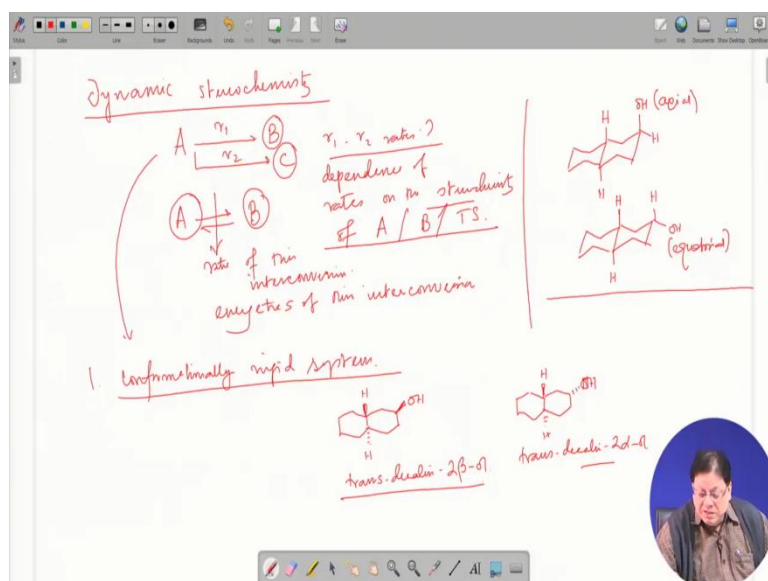 Stylus
Color
Line
Eraser
Backgrounds
Undo
Redo
Pages
Previous
Next
Erase
Board
Web
Documents
Show Desktop
OpenBoard
Dynamic stereochemistry
A r1 B
r2 C
r1 . r2 rates ?
dependence of
rates on the
of A / B / TS.
A B
rate of this
interconversion
energetics of this interconversion
1. Conformationally rigid system.
H
OH
H
trans-decalin-2β-ol
H
OH
H
trans-decalin-2α-ol
OH (axial)
H
H
H
H
H
OH
(equatorial)
H
AI